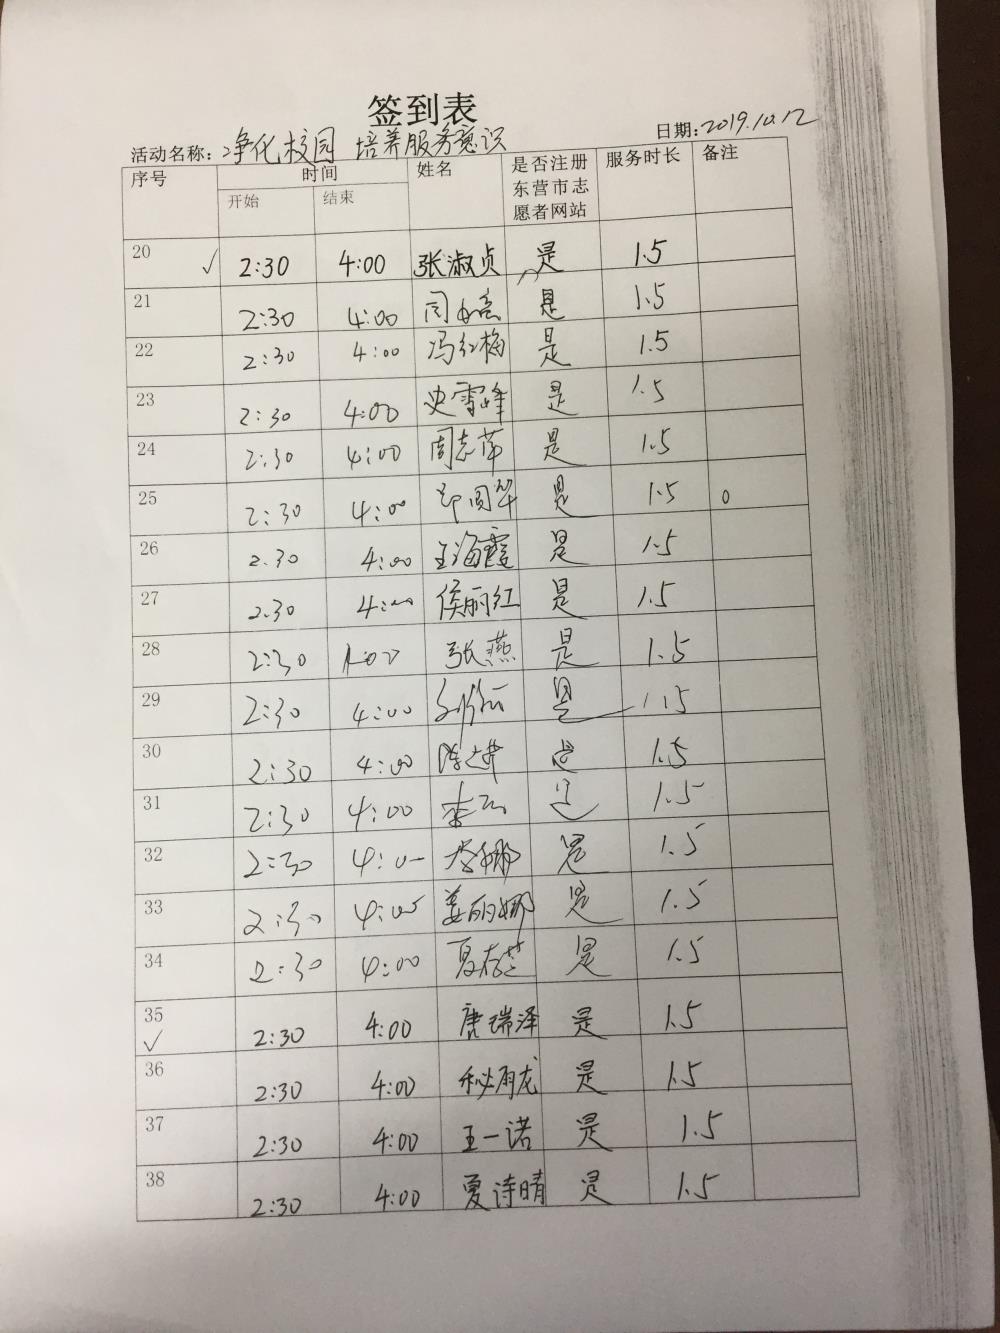 签到表
活动名称：净化校园 培养服务意识 日期：2019.10.12
序号 时间 姓名 是否注册东营市志愿者网站 服务时长 备注
开始 结束
20 ✓ 2:30 4:00 张淑贞 是 1.5
21 2:30 4:00 是 1.5
22 2:30 4:00 冯红梅 是 1.5
23 2:30 4:00 史雪峰 是 1.5
24 2:30 4:00 周志萍 是 1.5
25 2:30 4:00 是 1.5
26 2.30 4:00 王海霞 是 1.5
27 2.30 4:00 侯丽红 是 1.5
28 2:30 4:00 张燕 是 1.5
29 2:30 4:00 是 1.5
30 2:30 4:00 是 1.5
31 2:30 4:00 是 1.5
32 2:30 4:00 李娜 是 1.5
33 2:30 4:00 姜丽娜 是 1.5
34 2:30 4:00 夏存芝 是 1.5
35 ✓ 2:30 4:00 唐瑞泽 是 1.5
36 2:30 4:00 秘雨龙 是 1.5
37 2:30 4:00 王一诺 是 1.5
38 2:30 4:00 夏诗晴 是 1.5